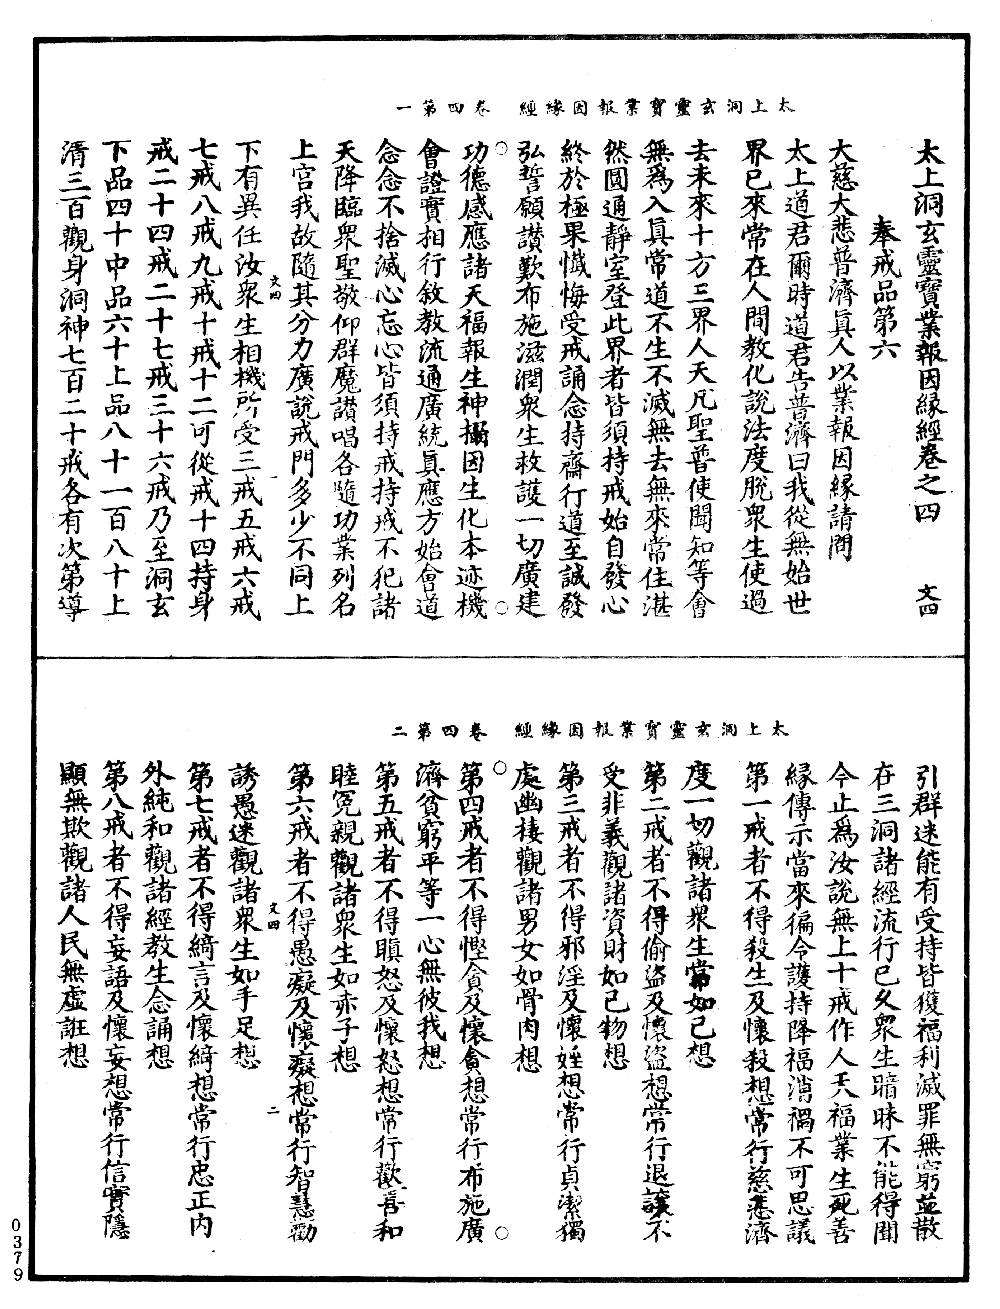 太上洞玄靈寶業報因緣經　卷四第一
太上洞玄靈寶業報因緣經卷之四　文四
奉戒品第六
大慈大悲普濟眞人以業報因緣請問
太上道君爾時道君告普濟曰我從無始世
界已來常在人間教化說法度脫衆生使過
去未來十方三界人天凡聖普使聞知等會
無爲入眞常道不生不滅無去無來常住湛
然圓通靜室登此界者皆須持戒始自發心
終於極果懺悔受戒誦念持齋行道至誠發
弘誓願讚歎布施滋潤衆生救護一切廣建
功德感應諸天福報生神攝因生化本迹機
會證實相行敘教流通廣統眞應方始會道
念念不捨滅心忘心皆須持戒持戒不犯諸
天降臨衆聖敬仰群魔讃唱各隨功業列名
上宮我故隨其分力廣說戒門多少不同上
文四
下有異任汝衆生相機所受三戒五戒六戒
七戒八戒九戒十戒十二可從戒十四持身
戒二十四戒二十七戒三十六戒乃至洞玄
下品四十中品六十上品八十一百八十上
清三百觀身洞神七百二十戒各有次第導
太上洞玄靈寶業報因緣經　卷四第二
引群迷能有受持皆獲福利滅罪無窮並散
在三洞諸經流行已久衆生暗昧不能得聞
今止爲汝說無上十戒作人天福業生死善
緣傳示當來徧令護持降福消禍不可思議
第一戒者不得殺生及懷殺想常行慈悲濟
度一切觀諸衆生當如己想
第二戒者不得偷盜及懷盜想常行退讓不
受非義觀諸資財如己物想
第三戒者不得邪淫及懷婬想常行貞潔獨
處幽棲觀諸男女如骨肉想
第四戒者不得慳貪及懷貪想常行布施廣
濟貧窮平等一心無彼我想
第五戒者不得瞋怒及懷怒想常行歡喜和
睦冤親觀諸衆生如赤子想
第六戒者不得愚癡及懷癡想常行智慧勸
文四　二
誘愚迷觀諸衆生如手足想
第七戒者不得綺言及懷綺想常行忠正內
外純和觀諸經教生念誦想
第八戒者不得妄語及懷妄想常行信實隱
顯無欺觀諸人民無虛誑想
0379